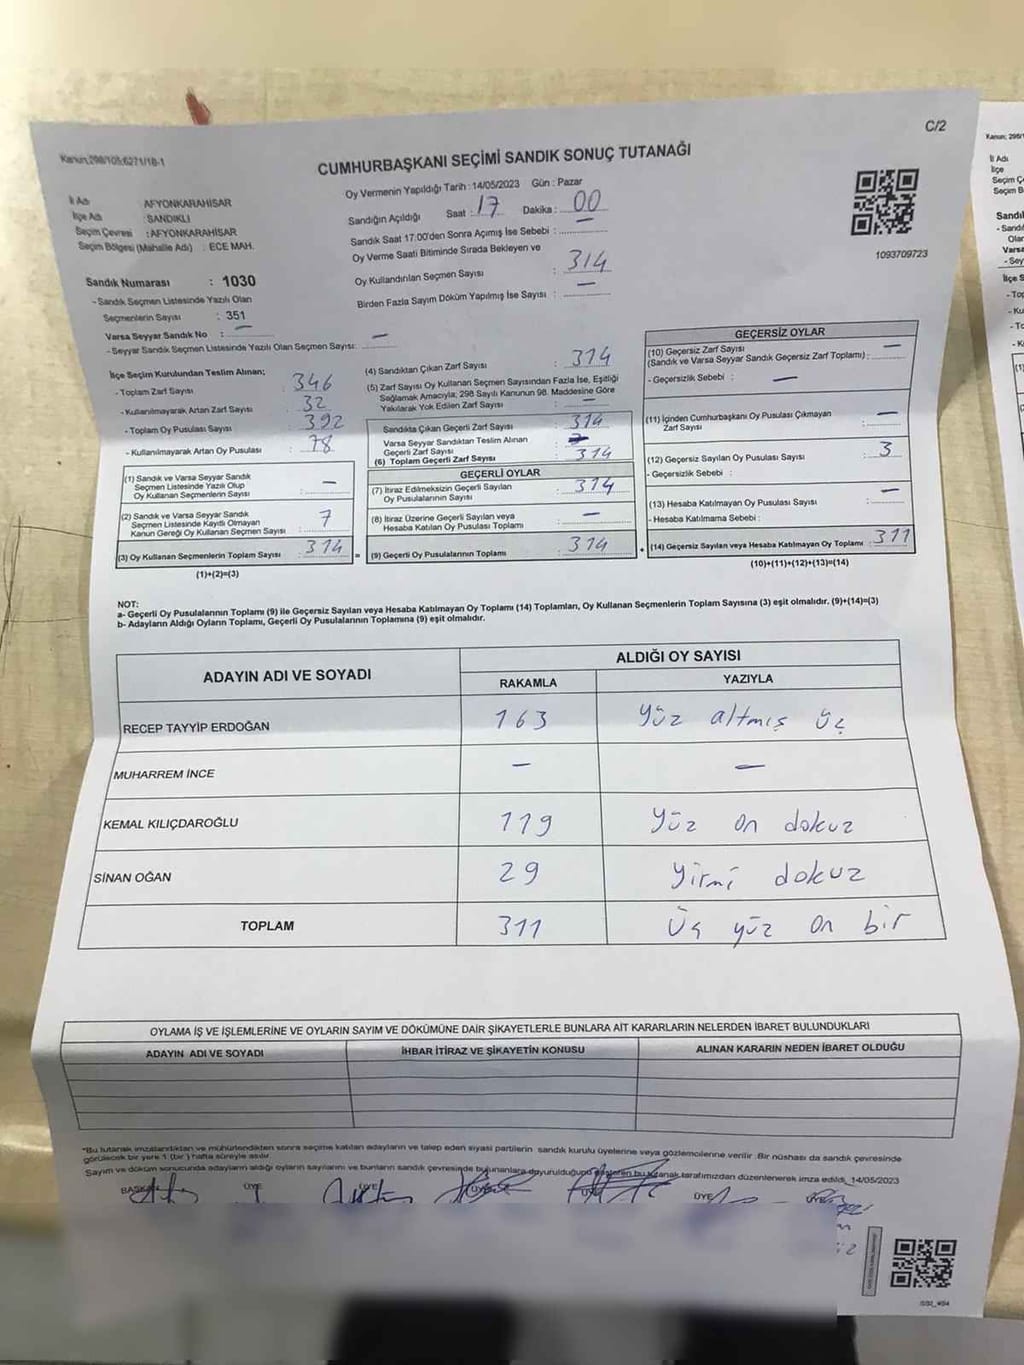 C/2
Kanun;298/105;6271/18-1
CUMHURBAŞKANI SEÇİMİ SANDIK SONUÇ TUTANAĞI
İl Adı : AFYONKARAHİSAR
İlçe Adı : SANDIKLI
Seçim Çevresi : AFYONKARAHİSAR
Seçim Bölgesi (Mahalle Adı) : ECE MAH.
Sandık Numarası : 1030
- Sandık Seçmen Listesinde Yazılı Olan
Seçmenlerin Sayısı : 351
Varsa Seyyar Sandık No : —
- Seyyar Sandık Seçmen Listesinde Yazılı Olan Seçmen Sayısı: —
Oy Vermenin Yapıldığı Tarih : 14/05/2023 Gün : Pazar
Sandığın Açıldığı Saat : 17 Dakika : 00
Sandık Saat 17:00'den Sonra Açılmış İse Sebebi : —
Oy Verme Saati Bitiminde Sırada Bekleyen ve
Oy Kullandırılan Seçmen Sayısı : 314
Birden Fazla Sayım Döküm Yapılmış İse Sayısı : —
1093709723
İlçe Seçim Kurulundan Teslim Alınan;
- Toplam Zarf Sayısı : 346
- Kullanılmayarak Artan Zarf Sayısı : 32
- Toplam Oy Pusulası Sayısı : 392
- Kullanılmayarak Artan Oy Pusulası : 78
(1) Sandık ve Varsa Seyyar Sandık
Seçmen Listesinde Yazılı Olup
Oy Kullanan Seçmenlerin Sayısı : —
(2) Sandık ve Varsa Seyyar Sandık
Seçmen Listesinde Kayıtlı Olmayan
Kanun Gereği Oy Kullanan Seçmen Sayısı : 7
(3) Oy Kullanan Seçmenlerin Toplam Sayısı : 314
(1)+(2)=(3)
(4) Sandıktan Çıkan Zarf Sayısı : 314
(5) Zarf Sayısı Oy Kullanan Seçmen Sayısından Fazla İse, Eşitliği
Sağlamak Amacıyla; 298 Sayılı Kanunun 98. Maddesine Göre
Yakılarak Yok Edilen Zarf Sayısı : —
Sandıkta Çıkan Geçerli Zarf Sayısı : 314
Varsa Seyyar Sandıktan Teslim Alınan
Geçerli Zarf Sayısı :
(6) Toplam Geçerli Zarf Sayısı : 314
GEÇERLİ OYLAR
(7) İtiraz Edilmeksizin Geçerli Sayılan
Oy Pusulalarının Sayısı : 314
(8) İtiraz Üzerine Geçerli Sayılan veya
Hesaba Katılan Oy Pusulası Toplamı : —
(9) Geçerli Oy Pusulalarının Toplamı : 314
GEÇERSİZ OYLAR
(10) Geçersiz Zarf Sayısı
(Sandık ve Varsa Seyyar Sandık Geçersiz Zarf Toplamı) : —
- Geçersizlik Sebebi : —
(11) İçinden Cumhurbaşkanı Oy Pusulası Çıkmayan
Zarf Sayısı : —
(12) Geçersiz Sayılan Oy Pusulası Sayısı : 3
- Geçersizlik Sebebi :
(13) Hesaba Katılmayan Oy Pusulası Sayısı : —
- Hesaba Katılmama Sebebi :
(14) Geçersiz Sayılan veya Hesaba Katılmayan Oy Toplamı : 311
(10)+(11)+(12)+(13)=(14)
NOT:
a- Geçerli Oy Pusulalarının Toplamı (9) ile Geçersiz Sayılan veya Hesaba Katılmayan Oy Toplamı (14) Toplamları, Oy Kullanan Seçmenlerin Toplam Sayısına (3) eşit olmalıdır. (9)+(14)=(3)
b- Adayların Aldığı Oyların Toplamı, Geçerli Oy Pusulalarının Toplamına (9) eşit olmalıdır.
ADAYIN ADI VE SOYADI ALDIĞI OY SAYISI
RAKAMLA YAZIYLA
RECEP TAYYİP ERDOĞAN 163 Yüz altmış üç
MUHARREM İNCE — —
KEMAL KILIÇDAROĞLU 119 Yüz on dokuz
SİNAN OĞAN 29 Yirmi dokuz
TOPLAM 311 Üç yüz on bir
OYLAMA İŞ VE İŞLEMLERİNE VE OYLARIN SAYIM VE DÖKÜMÜNE DAİR ŞİKAYETLERLE BUNLARA AİT KARARLARIN NELERDEN İBARET BULUNDUKLARI
ADAYIN ADI VE SOYADI İHBAR İTİRAZ VE ŞİKAYETİN KONUSU ALINAN KARARIN NEDEN İBARET OLDUĞU
*Bu tutanak imzalandıktan ve mühürlendikten sonra seçime katılan adayların ve talep eden siyasi partilerin sandık kurulu üyelerine veya gözlemcilerine verilir. Bir nüshası da sandık çevresinde
görülecek bir yere 1 (bir) hafta süreyle asılır.
Sayım ve döküm sonucunda adayların aldığı oyların sayılarını ve bunların sandık çevresinde bulunanlara duyurulduğunu gösteren bu tutanak tarafımızdan düzenlenerek imza edildi. 14/05/2023
BAŞKAN ÜYE ÜYE ÜYE ÜYE ÜYE ÜYE
Kanun
İl Adı
İlçe
Seçim Ç
Seçim B
Sandı
- Sandı
Olan
Varsa
- Sey
İlçe S
- Top
- Ku
- To
- K